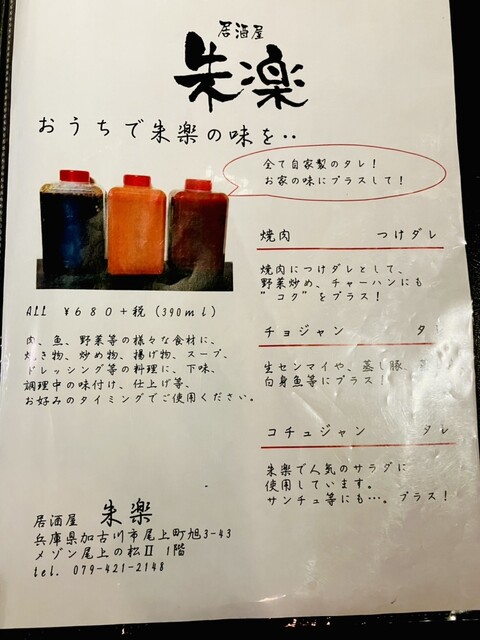 居酒屋
朱楽
おうちで朱楽の味を‥
全て自家製のタレ！
お家の味にプラスして！
焼肉 つけダレ
焼肉につけダレとして、
野菜炒め、チャーハンにも
"コク"をプラス！
ALL ¥680+税(390ml)
肉、魚、野菜等の様々な食材に、
焼き物、炒め物、揚げ物、スープ、
ドレッシング等の料理に、下味、
調理中の味付け、仕上げ等、
お好みのタイミングでご使用ください。
チョジャン タレ
生センマイや、蒸し豚、
白身魚等にプラス！
コチュジャン タレ
朱楽で人気のサラダに
使用しています。
サンチュ等にも…。プラス！
居酒屋 朱楽
兵庫県加古川市尾上町旭3-43
メゾン尾上の松Ⅱ 1階
tel. 079-421-2148